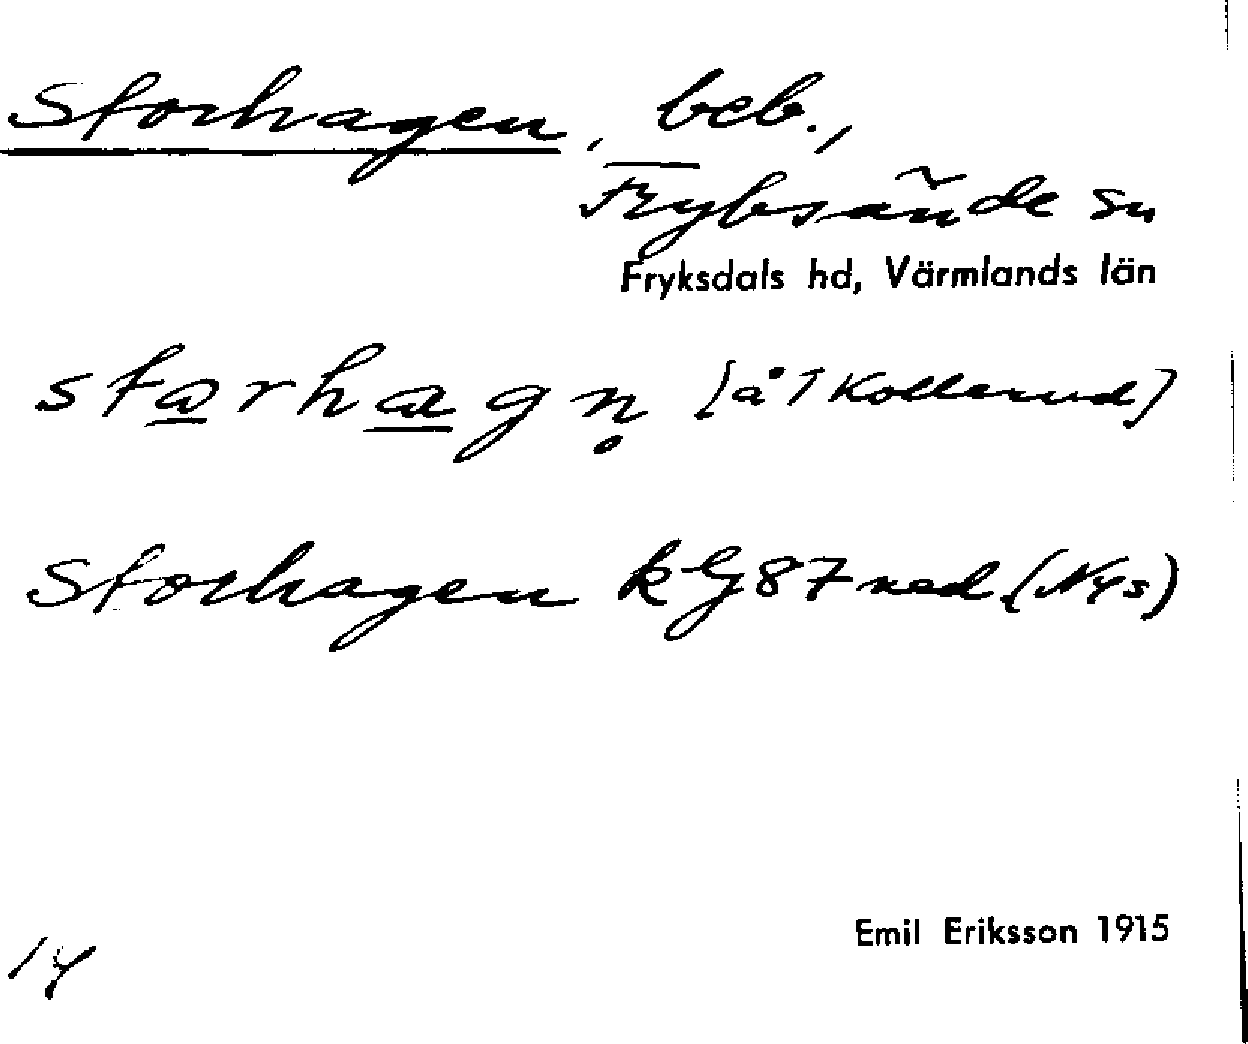 Storhagen, beb.,
Fryksände sn
Fryksdals hd, Värmlands län
starhagn̥ [å 1 Kollerud]
Storhagen kG87 ned (Nys)
Emil Eriksson 1915
14